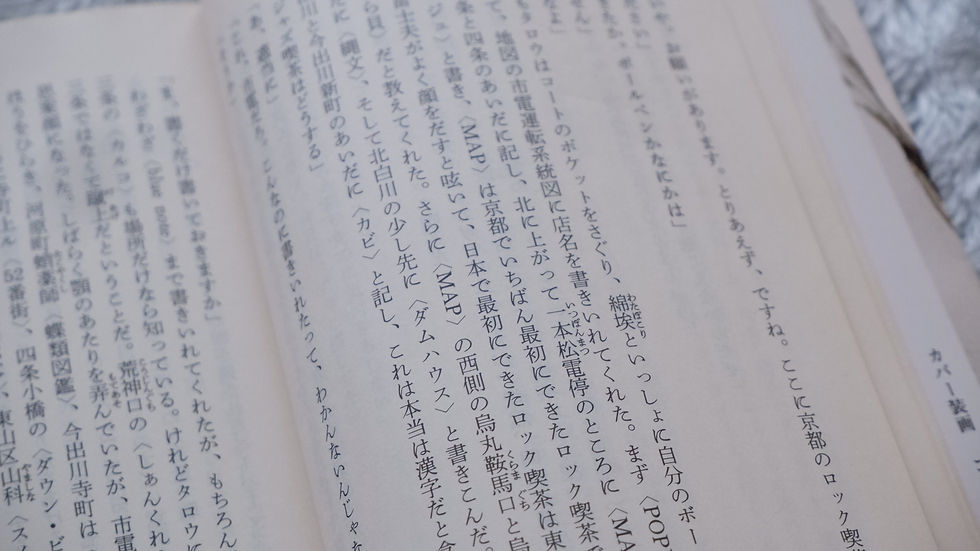 カバー装画
や、お願いがあります。とりあえず、ですね。ここに京都のロック喫
ださい」
たか、ボールペンかなにかは」
せん」
なよ」
もタロウはコートのポケットをさぐり、綿埃といっしょに自分のボー
て、地図の市電運転系統図に店名を書きいれてくれた。まず〈POP
条と四条のあいだに記し、北に上がって一本松電停のところに〈MA
ジュ〉と書き、〈MAP〉は京都でいちばん最初にできたロック喫茶で
富士夫がよく顔をだすと呟いて、日本で最初にできたロック喫茶は東
ら貝〉だと教えてくれた。さらに〈MAP〉の西側の烏丸鞍馬口と烏
に〈縄文〉、そして北白川の少し先に〈ダムハウス〉と書きこんだ。
川と今出川新町のあいだに〈カビ〉と記し、これは本当は漢字だと今
ジャズ喫茶はどうする」
「あ、適当に」
こんなのに書きいれたって、わかんないんじゃな
「ま、書くだけ書いておきますか」
わざわざ〈blue note〉まで書きいれてくれたが、もちろん
三条の〈カルコ〉も場所だけなら知っている。けれどタロウに
二条ではなくて蹴上だということだ。荒神口の〈しぁんくれ
思案顔になった。しばらく顎のあたりを弄んでいたが、市電
ほうをひらき、河原町蛸薬師〈蝶類図鑑〉、今出川寺町は
寺町上ル〈52番街〉、四条小橋の〈ダウン・ビ
東山区山科〈スイ